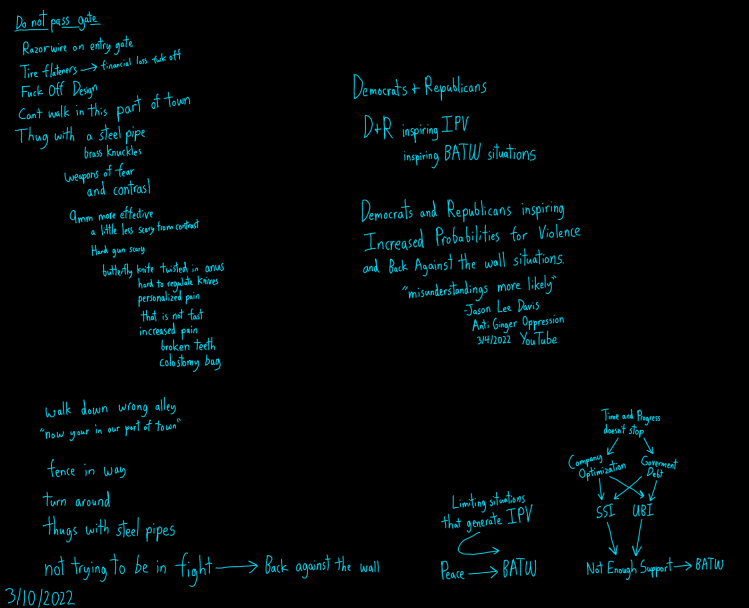 Do not pass gate
Razorwire on entry gate
Tire flateners → financial loss fuck off
Fuck Off Design
Cant walk in this part of town
Thug with a steel pipe
brass knuckles
weapons of fear
and contrast
9mm more effective
a little less scary from contrast
Hand gun scary
butterfly knife twisted in anus
hard to regulate knives
personalized pain
that is not fast
increased pain
broken teeth
colostomy bag
walk down wrong alley
"now your in our part of town"
fence in way
turn around
thugs with steel pipes
not trying to be in fight → Back against the wall
3/10/2022
Democrats + Republicans
D+R inspiring IPV
inspiring BATW situations
Democrats and Republicans inspiring
Increased Probabilities for Violence
and Back Against the wall situations.
"misunderstandings more likely"
-Jason Lee Davis
Anti Ginger Oppression
3/4/2022 YouTube
Limiting situations
that generate IPV
Peace → BATW
Time and Progress
doesn't stop
Company
Optimization
Goverment
Debt
SSI
UBI
Not Enough Support → BATW